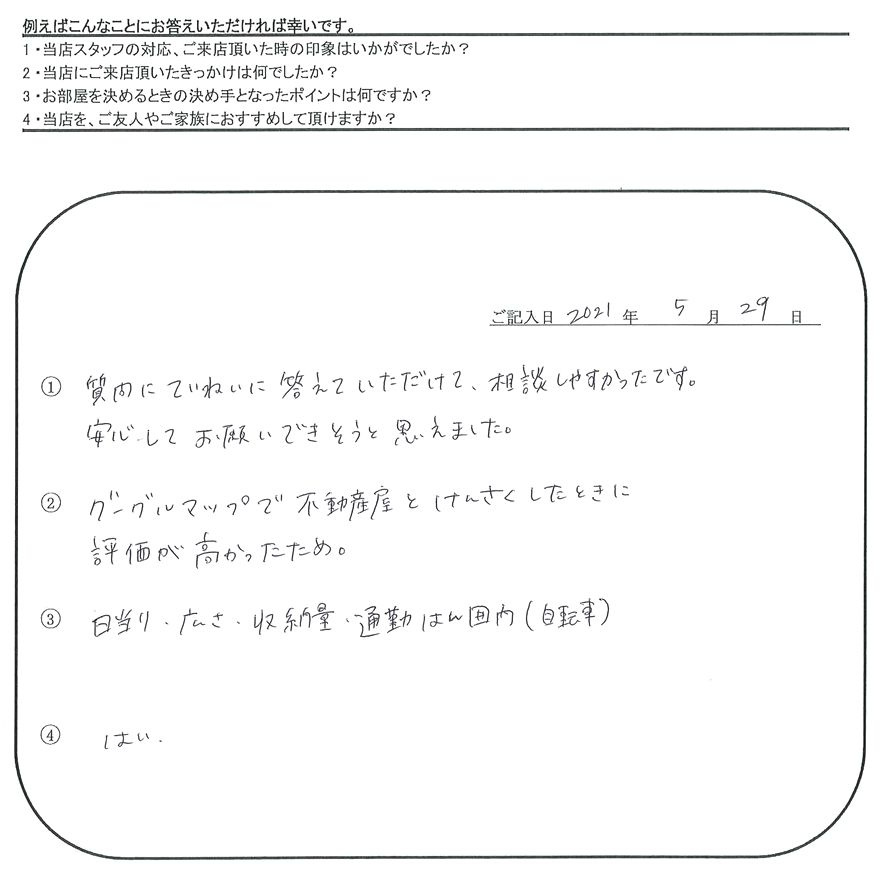 例えばこんなことにお答えいただければ幸いです。
1・当店スタッフの対応、ご来店頂いた時の印象はいかがでしたか？
2・当店にご来店頂いたきっかけは何でしたか？
3・お部屋を決めるときの決め手となったポイントは何ですか？
4・当店を、ご友人やご家族におすすめして頂けますか？
ご記入日 2021 年 5 月 29 日
① 質内にていねいに答えていただけて、相談しやすかったです。
安心してお願いできそうと思えました。
② グーグルマップで不動産屋とけんさくしたときに
評価が高かったため。
③ 日当り・広さ・収納量・通勤はん囲内(自転車)
④ はい.